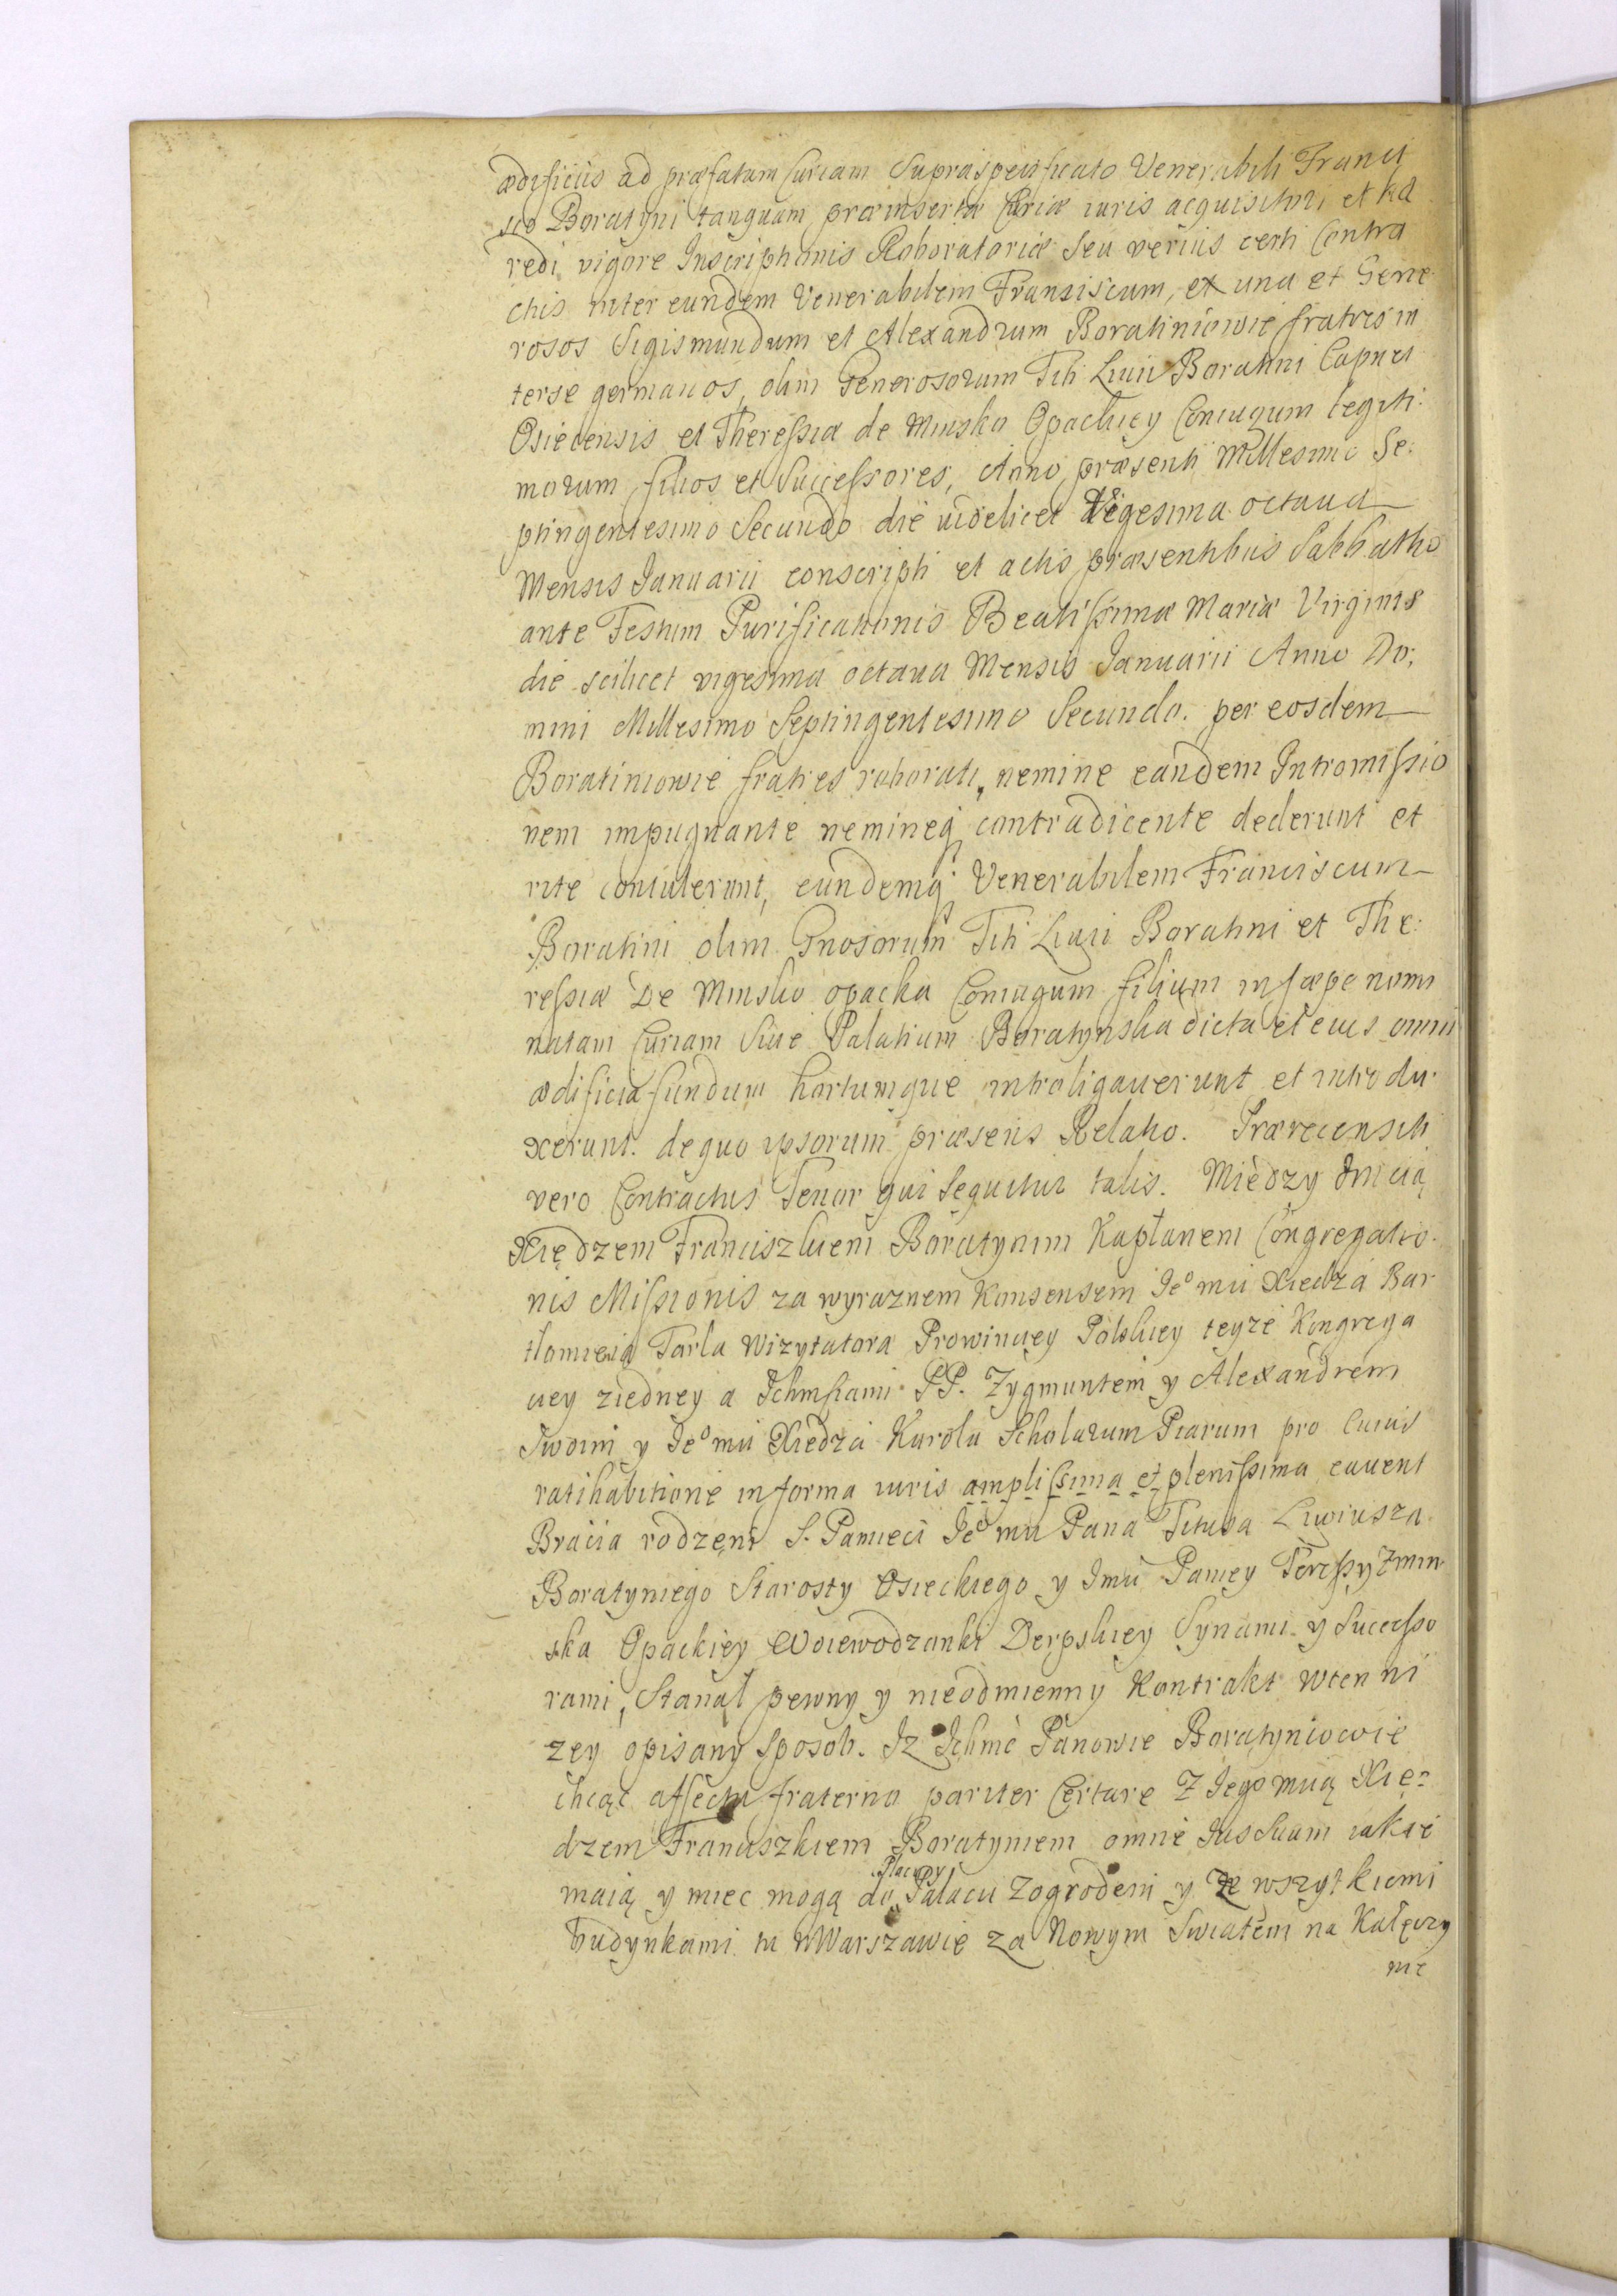 ædificiis ad præfatam Curiam Supraspecificato Venerabili Franci
sco Boratyni tanquam præinsertæ Curiæ iuris acquisitori et hæ
redi vigore Inscriptionis Roboratoriæ Seu verius certi Contra
ctus inter eundem Venerabilem Franciscum, ex una et Gene
rosos Sigismundum et Alexandrum Boratiniowie fratres in
terse germanos, olim Generosorum Titi Liuii Boratini Capnei
Osiecensis et Theressiæ de Minsko Opackiey Coniugum legiti:
morum filios et Successores, Anno præsenti Millesimo Se:
ptingentesimo Secundo die videlicet Vigesima octaua
Mensis Januarii conscripti et actis præsentibus Sabbatho
ante Festum Purificationis Beatissimæ Mariæ Virginis
die scilicet vigesima octaua Mensis Januarii Anno Do:
mini Millesimo Septingentesimo Secundo. per eosdem
Boratiniowie fratres roborati, nemine eandem Intromissio
nem impugnante nemineq contradicente dederunt et
rite contulerunt, eundemq Venerabilem Franciscum
Boratini olim Gnosorum Titi Liuii Boratini et The:
ressiæ De Minsko opacka Coniugum filium in sæpe nomi
natam Curiam Siue Palatium Boratynska dicta et eius omni
ædificia fundum hortumque introligauerunt et introdu
xerunt. de quo ipsorum præsens Relatio. Prærecensiti
vero Contractus Tenor qui Sequitur talis. Między Jmcią
Xiędzem Franciszkiem Boratynim Kapłanem Congregatio
nis Missionis za wyraznem Konsensem Jeo mci Xiedza Bar
tłomieia Tarla Wizytatora Prowincyey Polskiey teyze Kongrega
cyey ziedney a Ichmsciami PP. Zygmuntem y Alexandrem
Swoim y Jeo mci Xiedza Karola Scholarum Piarum pro cuius
ratihabitione in forma iuris amplissima et plenissima cauent
Bracia rodzeni S. Pamieci Jeo mci Pana Titusa Liwiusza
Boratyniego Starosty Osieckiego y Jmci Paniey Teressy Zmin
ska Opackiey Woiewodzanki Derpskiey Synami y Successo
rami, Stanął pewny y nieodmienny Kontrakt wten ni
zey opisany sposob. Iz Ichmc Panowie Boratyniowie
chcąc affectu fraterno pariter Certare z Jego mcią Xię=
dzem Franciszkiem Boratyniem omne Jus Suum iakie
maią y miec mogą do Placu y Pałacu Zogrodem y ze wszytkiemi
budynkami tu w Warszawie za Nowym Swiatem na Kałęczy
nie